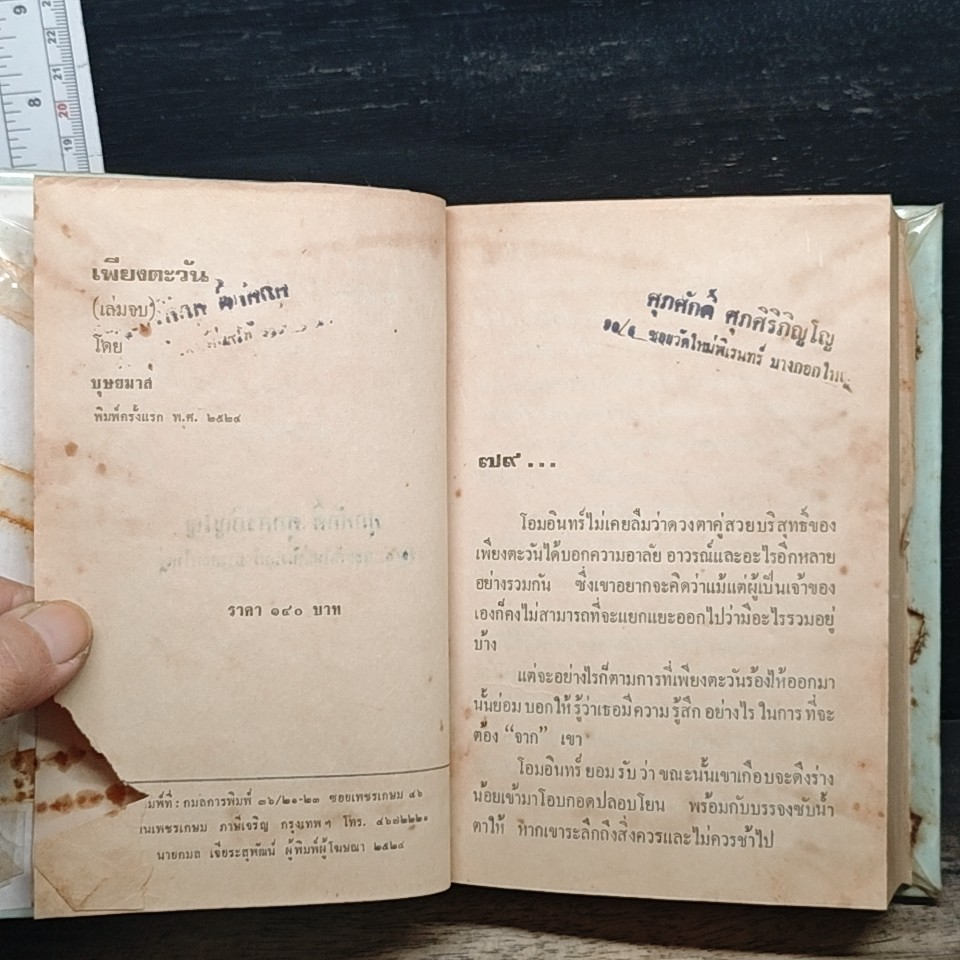 9
8
22
21
20
19
เพียงตะวัน
(เล่มจบ)
โดย
บุษยมาส
พิมพ์ครั้งแรก พ.ศ. ๒๕๒๔
ราคา ๑๔๐ บาท
มพ์ที่ : กมลการพิมพ์ ๓๖/๒๑-๒๓ ซอยเพชรเกษม ๔๖
นเพชรเกษม ภาษีเจริญ กรุงเทพฯ โทร. ๔๖๗๒๒๒๑
นายกมล เจียระสุพัฒน์ ผู้พิมพ์ผู้โฆษณา ๒๕๒๔
ศุภศักดิ์ ศุภศิริภิญโญ
๑๐/๑ ซอยวัดใหม่พิเรนทร์ บางกอกใหญ่
๗๙ ...
โอมอินทร์ไม่เคยลืมว่าดวงตาคู่สวยบริสุทธิ์ของ
เพียงตะวันได้บอกความอาลัย อาวรณ์และอะไรอีกหลาย
อย่างรวมกัน ซึ่งเขาอยากจะคิดว่าแม้แต่ผู้เป็นเจ้าของ
เองก็คงไม่สามารถที่จะแยกแยะออกไปว่ามีอะไรรวมอยู่
บ้าง
แต่จะอย่างไรก็ตามการที่เพียงตะวันร้องไห้ออกมา
นั้นย่อม บอกให้ รู้ว่าเธอมี ความ รู้สึก อย่างไร ในการ ที่จะ
ต้อง “จาก” เขา
โอมอินทร์ ยอม รับ ว่า ขณะนั้นเขาเกือบจะดึงร่าง
น้อยเข้ามาโอบกอดปลอบโยน พร้อมกับบรรจงซับน้ำ
ตาให้ หากเขาระลึกถึงสิ่งควรและไม่ควรช้าไป